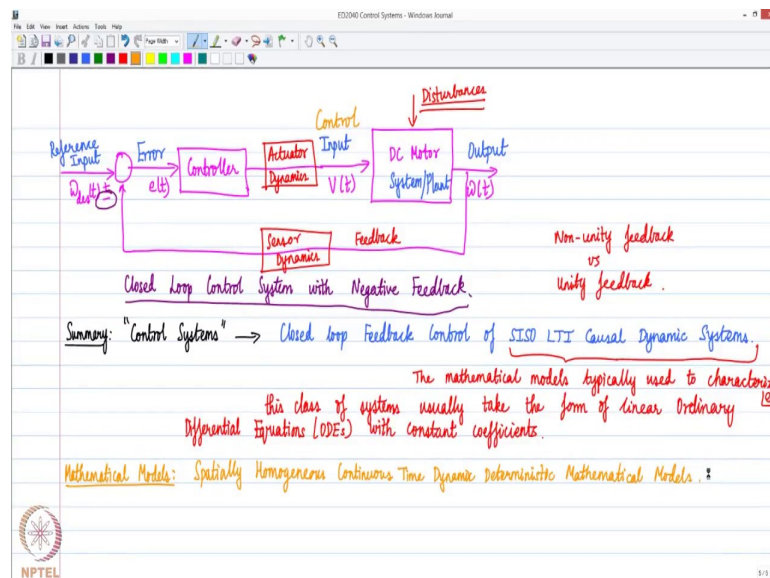 ED2040 Control Systems - Windows Journal
File Edit View Insert Actions Tools Help
Page Width
B I
Disturbances
Control
Reference
Input
Error
Controller
Actuator
Dynamics
Input
DC Motor
System/Plant
Output
ω_des(t) +
−
e(t)
V(t)
ω(t)
Sensor
Dynamics
Feedback
Non-unity feedback
vs
Unity feedback.
Closed Loop Control System with Negative Feedback.
Summary: "Control Systems" → Closed Loop Feedback Control of SISO LTI Causal Dynamic Systems.
The mathematical models typically used to characteriz
this class of systems usually take the form of linear Ordinary
Differential Equations (ODEs) with constant coefficients.
Mathematical Models: Spatially Homogeneous Continuous Time Dynamic Deterministic Mathematical Models.
NPTEL
5/5